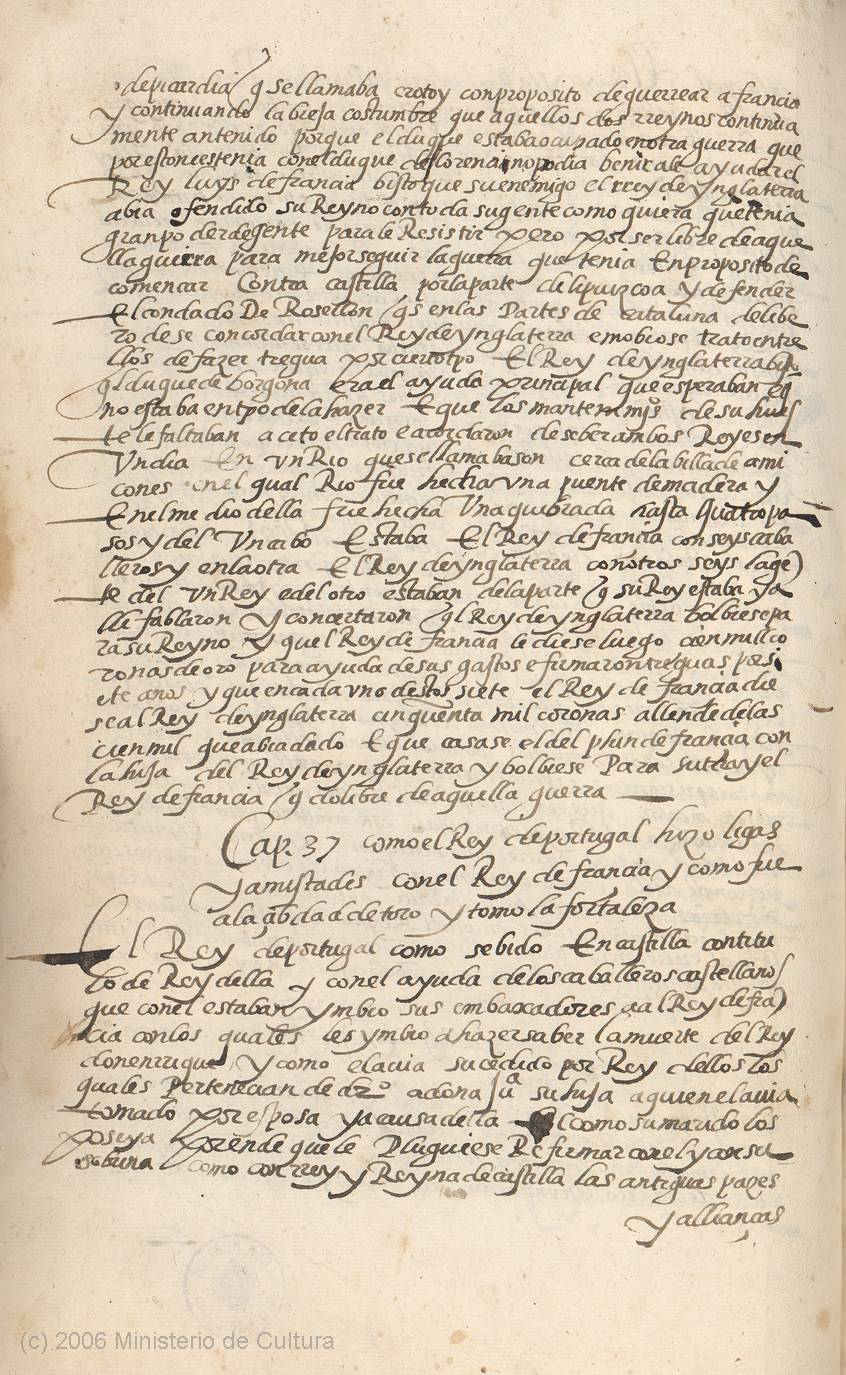 de picardia q se llamaba crotoy con proposito de guerrear a francia
y continuando la bieja costumbre que aquellos dos rreynos continua
mente an tenido porque el duque estaba ocupado en otra guerra que
por estonces tenia con el duque de lorena no podia benir a le ayudar el
Rey luys de francia bisto que su enemigo el rrey de ynglaterra
abia ofendido su Reyno con toda su gente como quiera que tenia
gran poder de gente para le Resistir pero por ser libre de aque
lla guerra para mejor seguir la guerra que tenia En proposito de
comencar Contra castilla por la parte de lipuzcoa y defender
El condado De Rosellon q es en las Partes de cataluna delibe
ro de se concordar con el Rey de ynglaterra e mobiose trato entre
llos de fazer tregua por cierto tpo El Rey de ynglaterra bisto
ql duque de borgona era el ayuda principal que esperaban
no estaba en tpo de la hazer E que los mantenimis de su hues
te le faltaban aceto el trato e acordaron de se ber ambos Reyes en
Un dia En vn Rio que se llamaba son cerca de la billa de ami
cones en el qual Rio fue hecha vna puente de madera y
En el medio della fue hecha Una quebrada hasta quatro pa
sos y del Un cabo Estaba El Rey de francia con seys caba
lleros y en la otra El Rey de ynglaterra con otros seys la ge
te del vn Rey e del otro estaban de la parte q su Rey estaba y a
lli fablaron y concertaron ql Rey de ynglaterra bolbiese pa
ra su Reyno y quel Rey de francia le diese luego cien mill co
ronas de oro para ayuda de sus gastos e firmaron treguas por si
ete anos y que en cada vno destos siete el Rey de francia die
se al Rey de ynglaterra cinquenta mil coronas allende de las
cien mil que abia dado E que casase el delphin de francia con
la hija del Rey de ynglaterra y bolbiese Para su tierra y el
Rey de francia qdo libre de aquella guerra
Cap. 37 como el Rey de portugal hizo ligas
y amistades con el Rey de francia y como fue
a la çibdad de toro y tomo la fortaleza
El Rey de portugal como se bido En castilla con titu
lo de Rey della y con el ayuda de los caballeros castellanos
que con el estaban ymbio sus embaxadores al Rey de fra
cia con los quales les ymbio a hazer saber la muerte del Rey
don enrrique y como el avia sucedido por Rey dellos los
quales Pertenecian de drº a dona jua su hija a quien el avia
tomado por esposa y a causa della El como su marido los
poseya porende que le Pluguiese Refirmar con el y con su
sobrina como con rrey y Reyna de castilla las antiguas pazes
y allianças
(c) 2006 Ministerio de Cultura